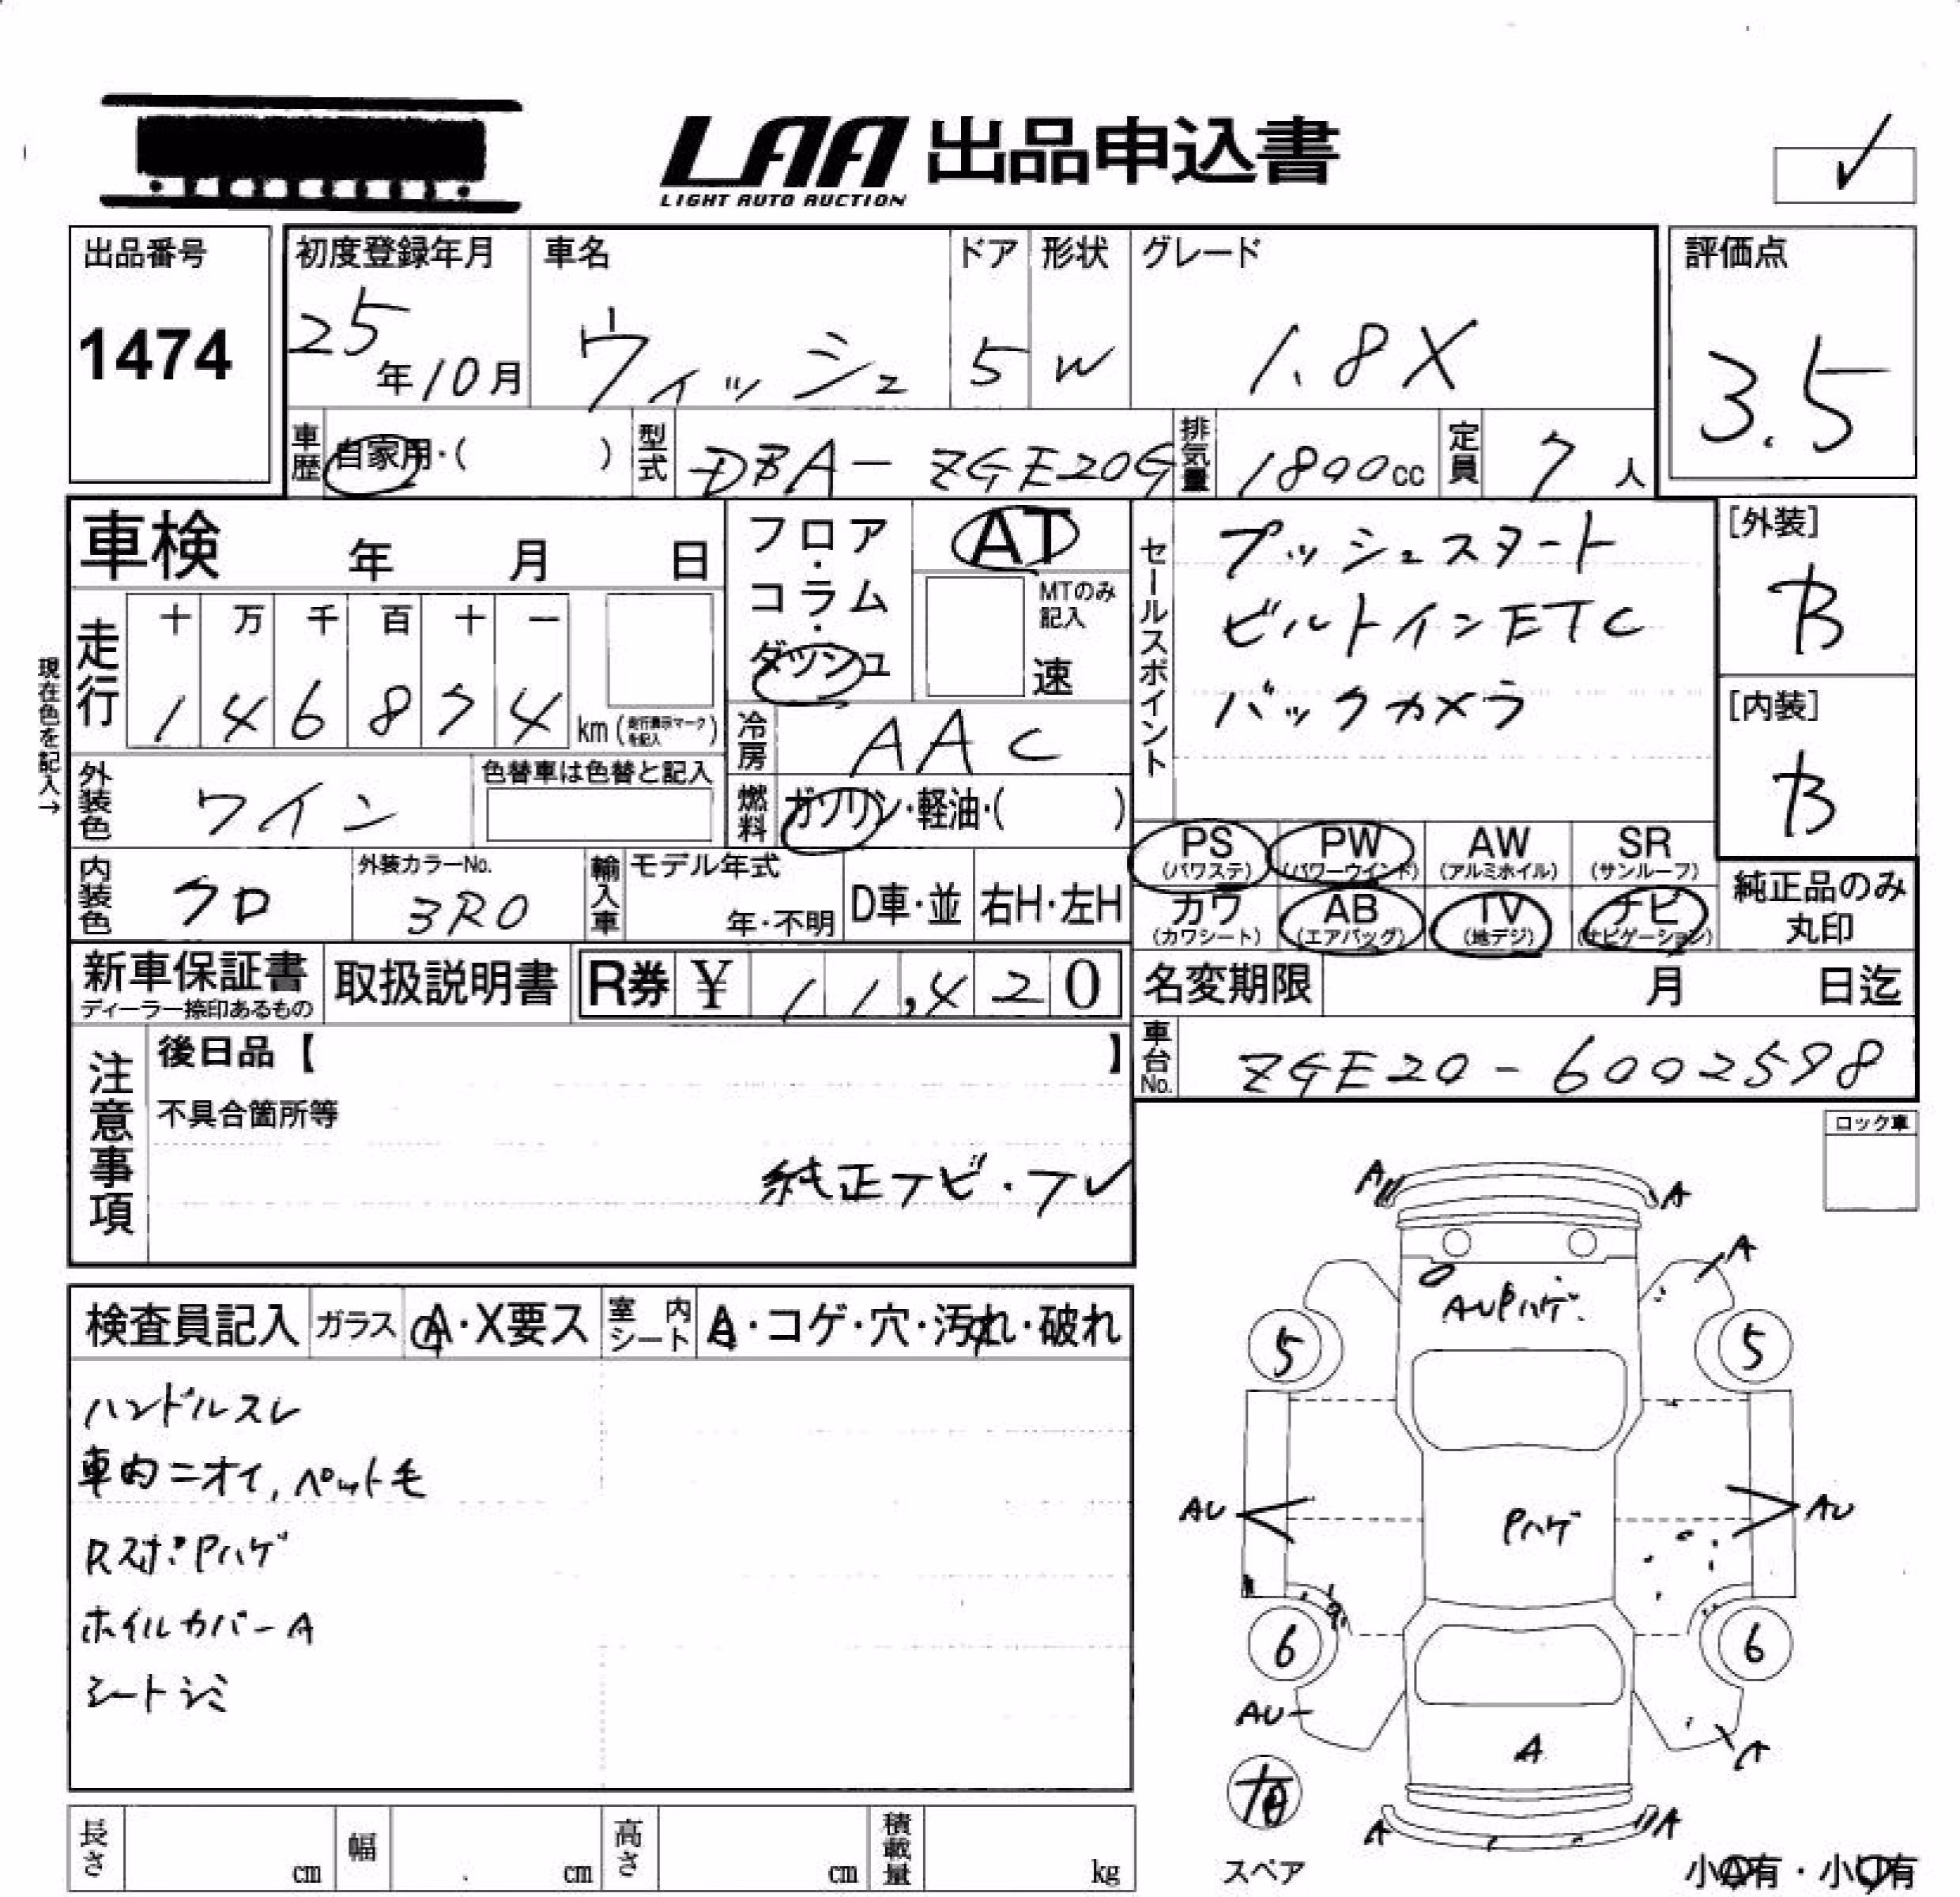 LAA 出品申込書
LIGHT AUTO AUCTION
✓
出品番号
1474
初度登録年月
25年10月
車名
ウィッシュ
ドア
5
形状
W
グレード
1.8X
評価点
3.5
車歴
自家用・( )
型式
DBA-ZGE20G
排気量
1800cc
定員
7人
車検 年 月 日
フロア・コラム・ダッシュ
AT
MTのみ記入
速
セールスポイント
プッシュスタート
ビルトインETC
バックカメラ
[外装]
B
[内装]
B
現在色を記入→
走行
十 万 千 百 十 一
1 4 6 8 7 4 km (走行表示マークを記入)
冷房
AAC
外装色
ワイン
色替車は色替と記入
燃料
ガソリン・軽油・( )
PS (パワステ)
PW (パワーウインド)
AW (アルミホイル)
SR (サンルーフ)
カワ (カワシート)
AB (エアバッグ)
TV (地デジ)
ナビ (ナビゲーション)
純正品のみ丸印
内装色
クロ
外装カラーNo.
3R0
輸入車
モデル年式
年・不明
D車・並
右H・左H
新車保証書
ディーラー捺印あるもの
取扱説明書
R券 ¥ 11,420
名変期限 月 日迄
車台No.
ZGE20-6002598
注意事項
後日品【 】
不具合箇所等
純正ナビ・TV
ロック車
検査員記入
ガラス
A・X要ス
室内シート
A・コゲ・穴・汚れ・破れ
ハンドルスレ
車内ニオイ,ペット毛
RスポPハゲ
ホイルカバーA
シートシミ
A
A
A
AUPハゲ
5
5
AU
Pハゲ
AU
6
6
AU
A
A
有
A
A
スペア
小A有・小U有
長さ cm
幅 cm
高さ cm
積載量 kg